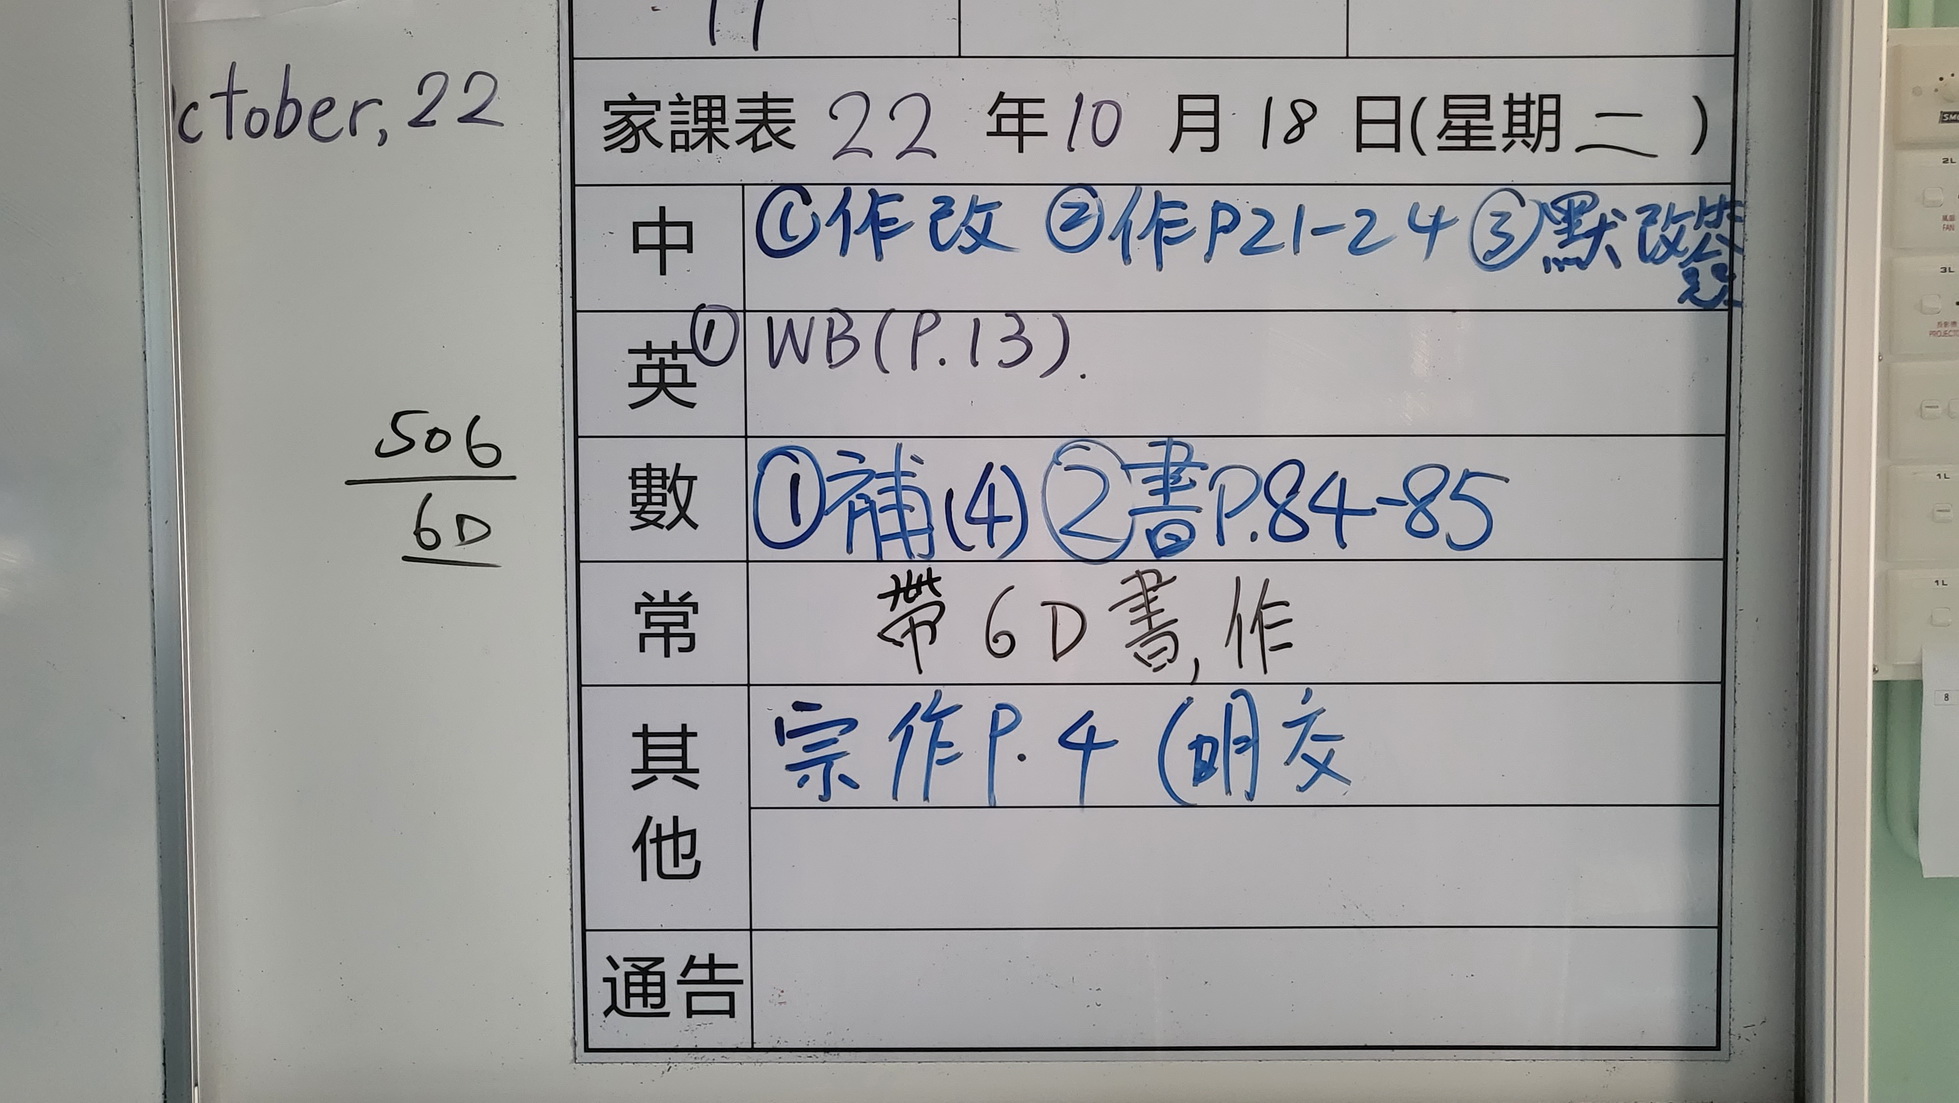 ctober, 22
家課表 22 年 10 月 18 日(星期二)
中 ①作改 ②作P21-24 ③默改簽
英 ① WB(P.13).
506
6D
數 ①補(4) ②書P.84-85
常 帶6D書,作
其他 宗作P.4 (明交
通告